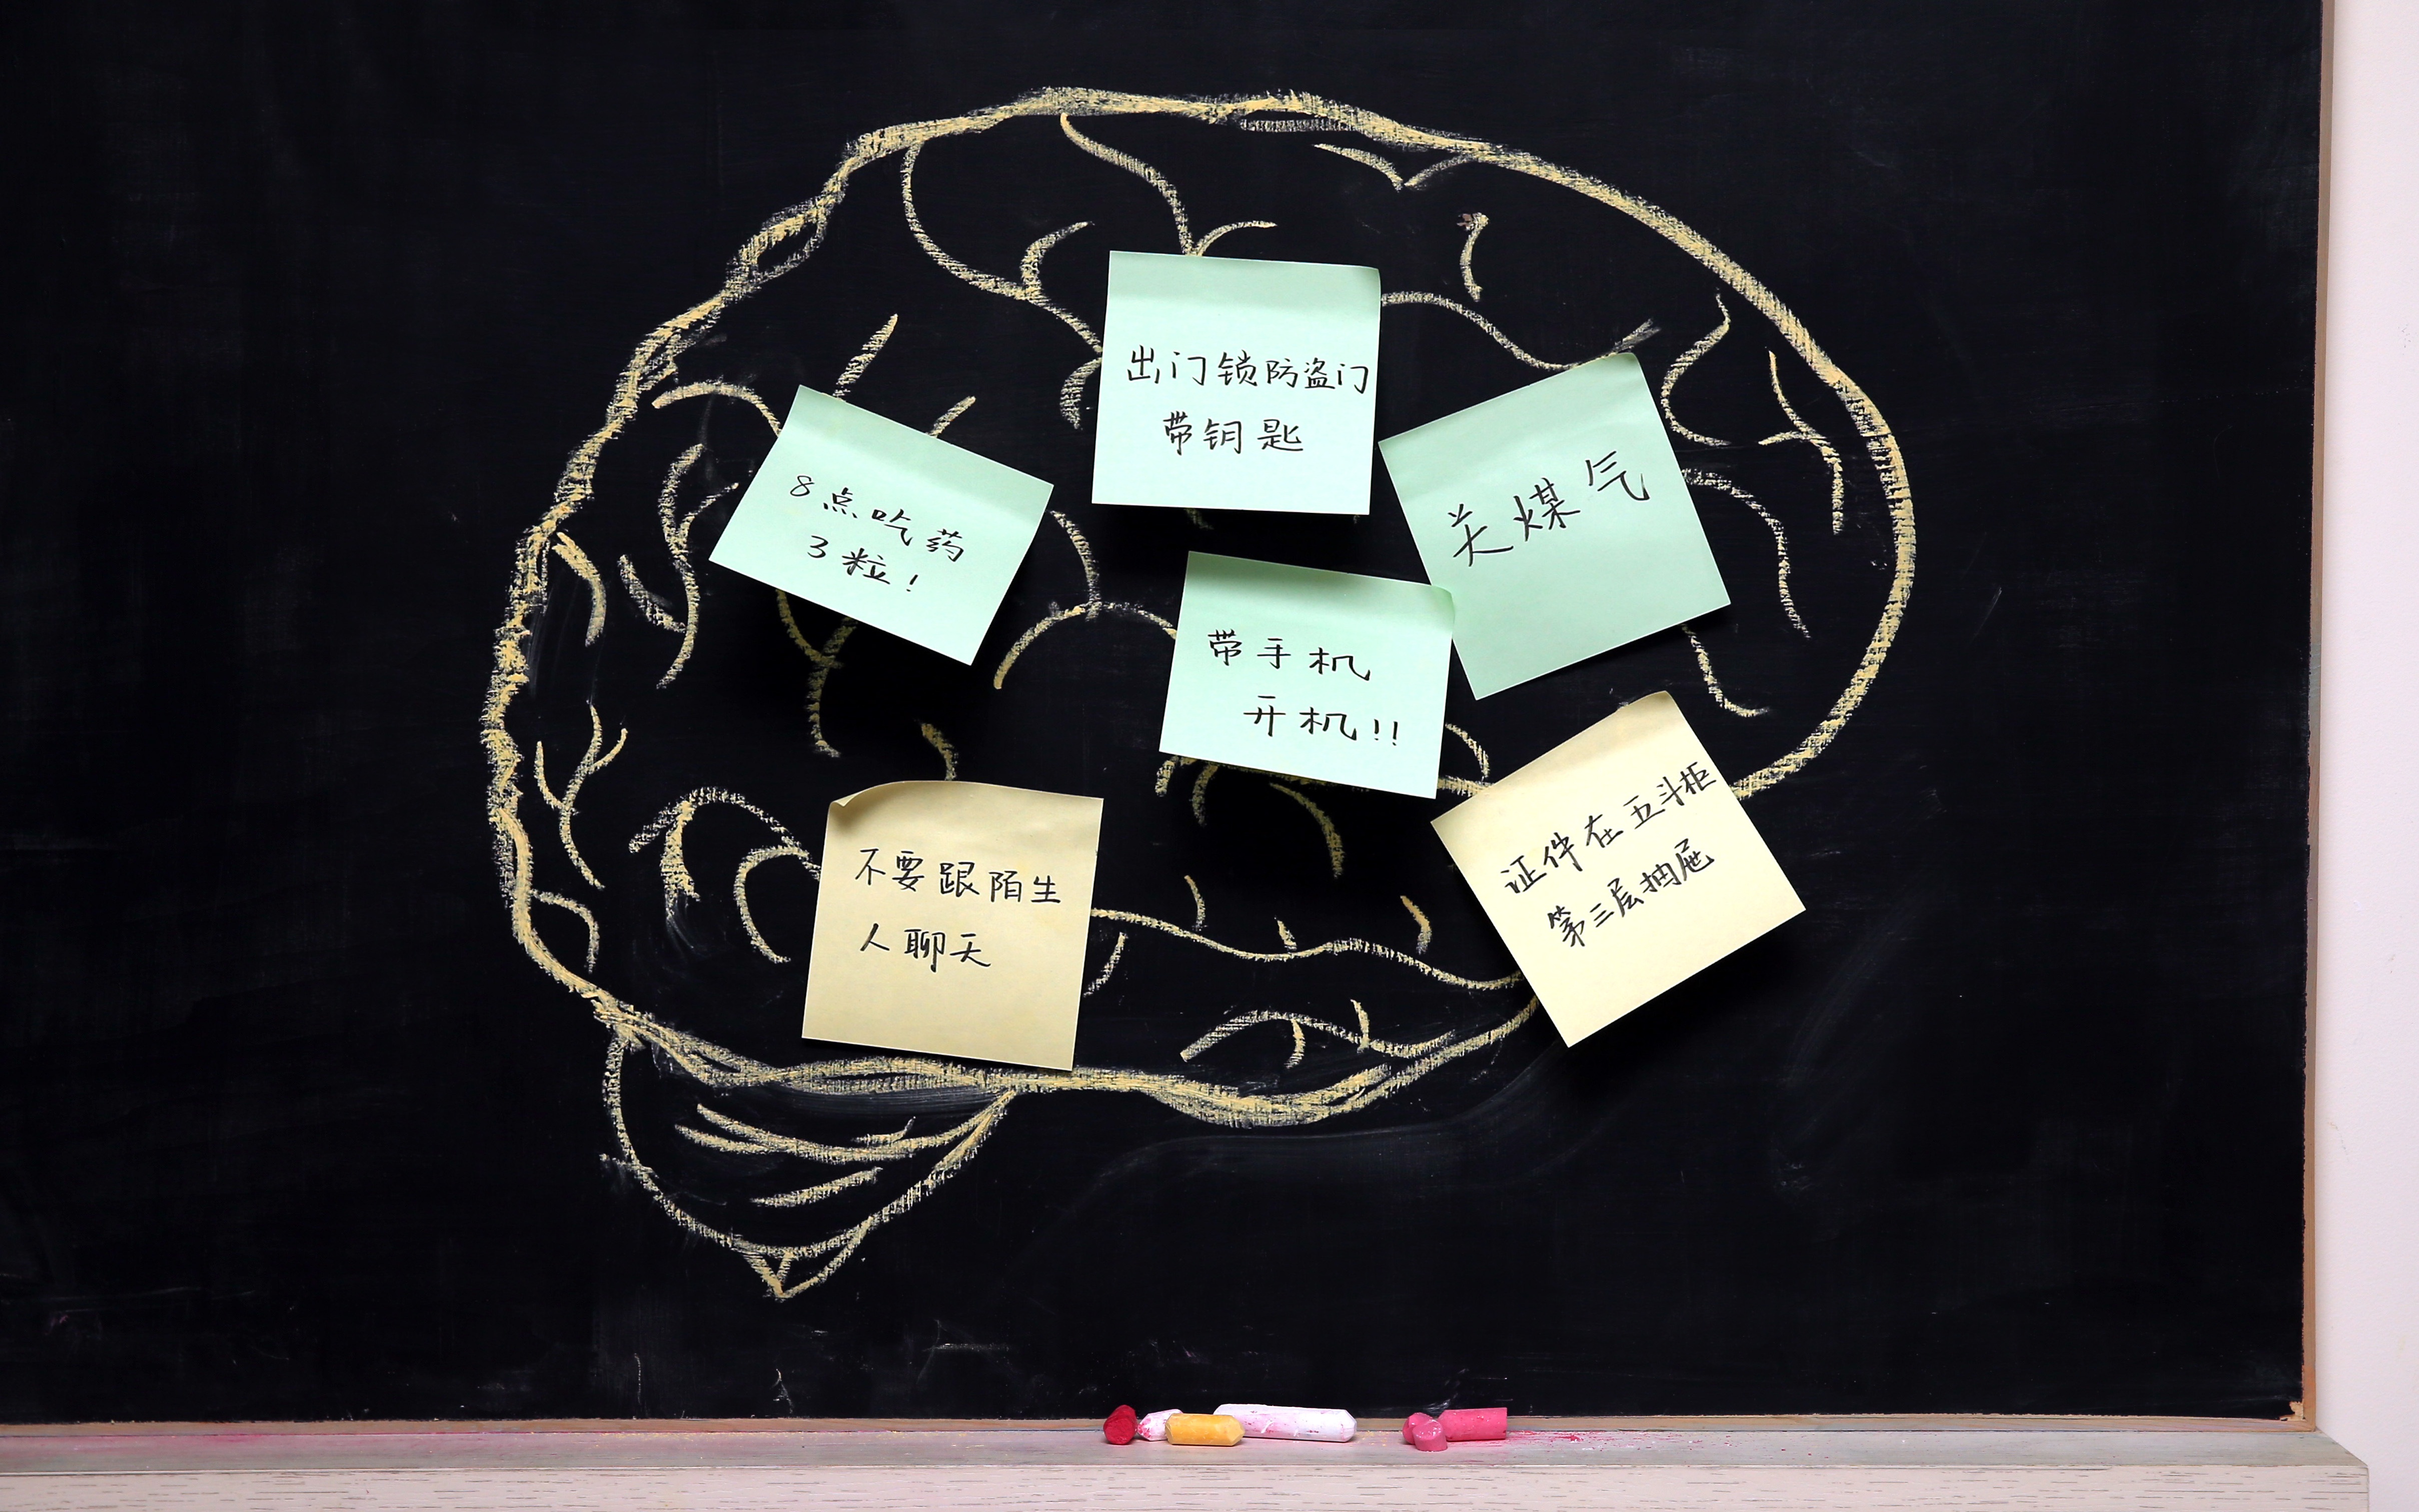 出门锁防盗门
带钥匙
8点吃药
3粒!
关煤气
带手机
开机!!
不要跟陌生
人聊天
证件在五斗柜
第三层抽屉